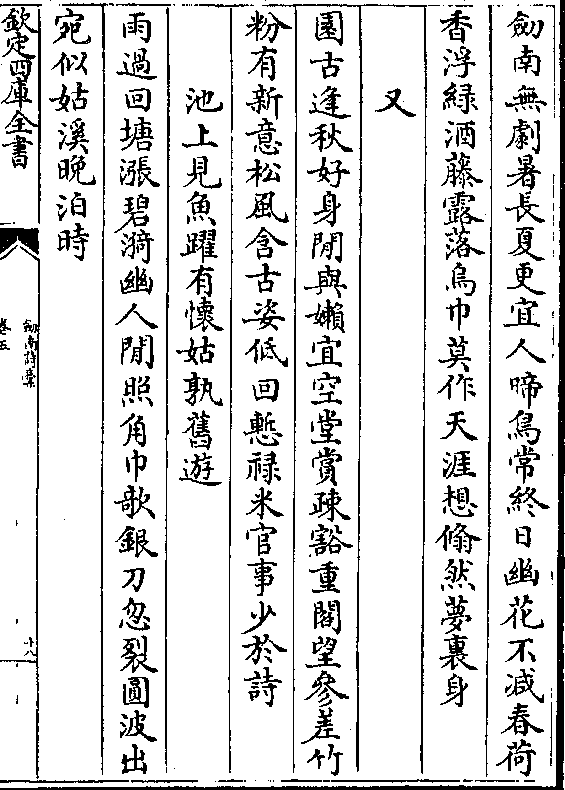 劒南無劇暑長夏更宜人啼鳥常終日幽花不减春荷
香浮緑酒藤露落烏巾莫作天涯想翛然夢裏身
又
園古逢秋好身閒與嬾宜空堂賞疎豁重閣望參差竹
粉有新意松風含古姿低回慙禄米官事少於詩
池上見魚躍有懷姑孰舊遊
雨過回塘漲碧漪幽人閒照角巾欹銀刀忽裂圓波出
宛似姑溪晚泊時
欽定四庫全書
劒南詩藁
卷五
十八